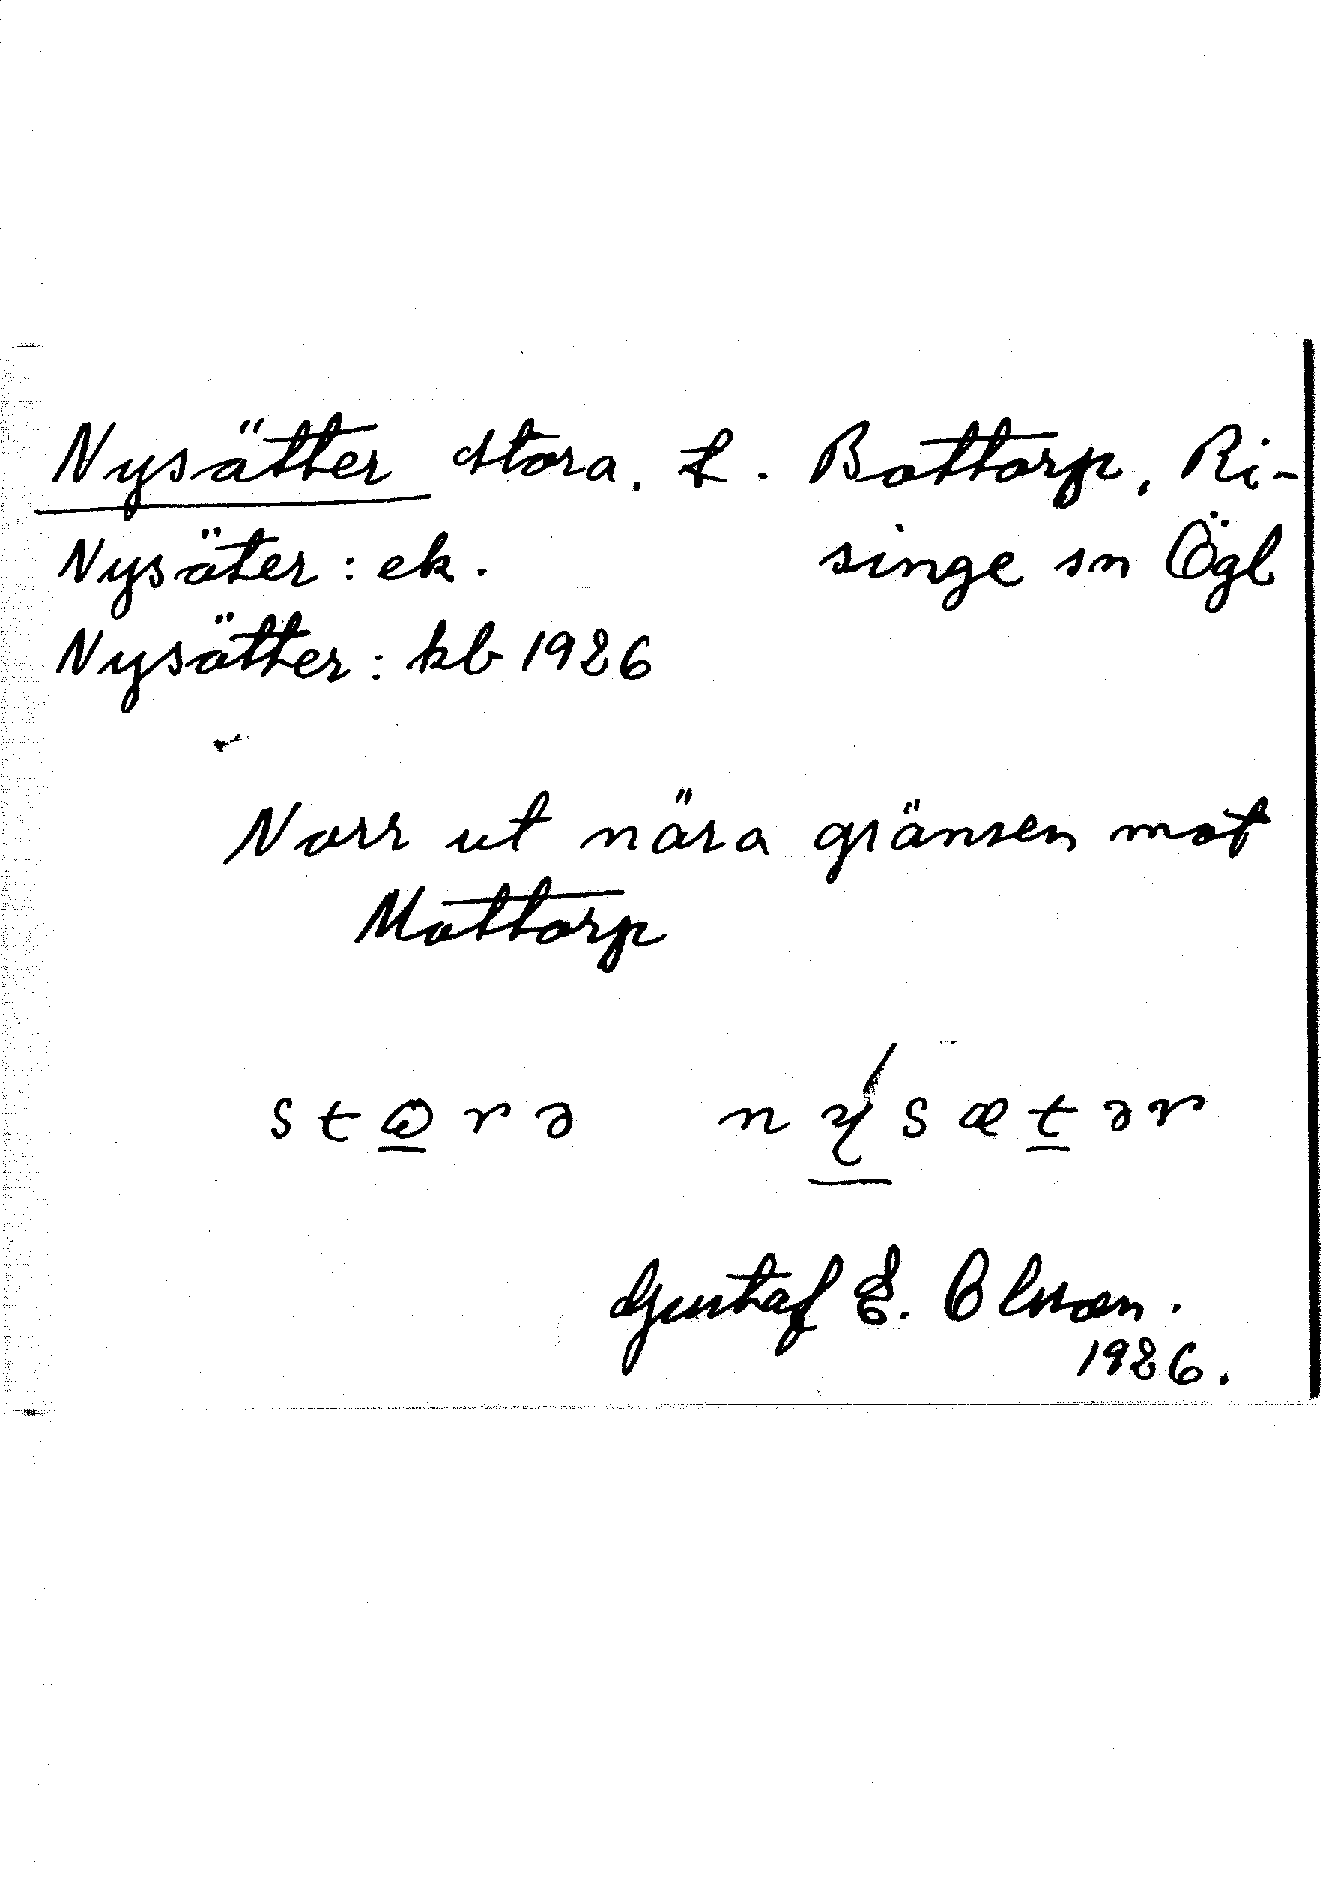 Nysätter Stora. t. Bottorp, Ri-
Nysäter: ek. singe sn Ögl
Nysätter: kb 1926
Norr ut nära gränsen mot
Mottorp
Gustaf E. Olsson.
1926.